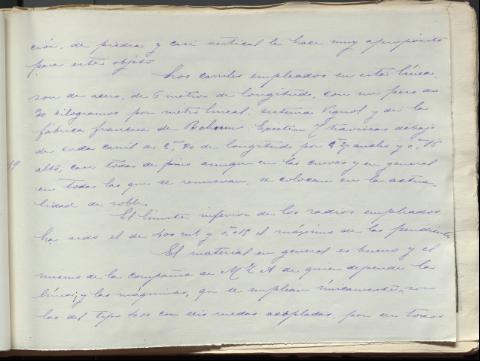 ción, de piedra y casi vertical la hace muy apropósito
para este objeto.
Los carriles empleados en esta línea,
son de acero, de 6 metros de longitud, con un peso de
30 kilogramos por metro lineal, sistema Vignol y de la
fabrica francesa de traviesas debajo
de cada carril de de longitud por ancho y
alto, casi todas de pino aunque en las curvas y en general
en todas las que se renuevan, se colocan en la actua-
lidad de roble.
El límite inferior de los radios empleados
ha sido el de 400 mt y el máximo de las pendientes
El material en general es bueno y el
mismo de la compañia de M.Z.A de quien depende la
línea; y las máquinas, que se emplean únicamente, son
las del tipo con seis ruedas acopladas por un todas